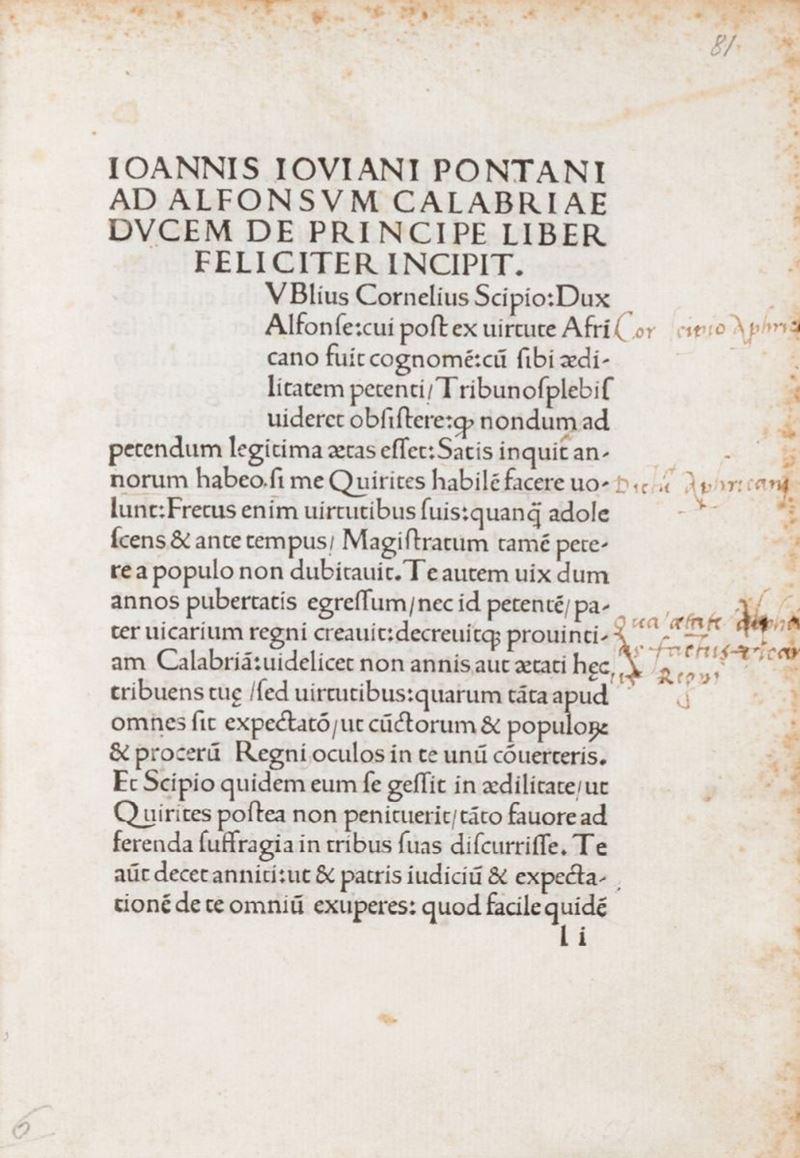 81
IOANNIS IOVIANI PONTANI
AD ALFONSVM CALABRIAE
DVCEM DE PRINCIPE LIBER
FELICITER INCIPIT.
VBlius Cornelius Scipio:Dux
Alfonſe:cui poſt ex uirtute Afri
cano fuit cognomē:cū ſibi ædi-
litatem petenti/Tribunoſplebiſ
uideret obſiſtere:ꝙ nondum ad
petendum legitima ætas eſſet:Satis inquit an-
norum habeo.ſi me Quirites habilē facere uo-
lunt:Fretus enim uirtutibus ſuis:quanq̄ adole
ſcens & ante tempus/ Magiſtratum tamē pete-
re a populo non dubitauit.Te autem uix dum
annos pubertatis egreſſum/nec id petentē/pa-
ter uicarium regni creauit:decreuitq; prouinti-
am Calabriā:uidelicet non annis aut ætati hęc
tribuens tuę /ſed uirtutibus:quarum tāta apud
omnes ſit expectatō/ut cūctorum & populoꝝ
& procerū Regni oculos in te unū cōuerteris.
Et Scipio quidem eum ſe geſſit in ædilitate/ut
Quirites poſtea non penituerit/tāto fauore ad
ferenda ſuffragia in tribus ſuas diſcurriſſe. Te
aūt decet anniti:ut & patris iudiciū & expecta-
tionē de te omniū exuperes: quod facile quidē
l i
6